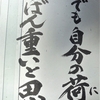 でも自分の荷に
ばん重いと思